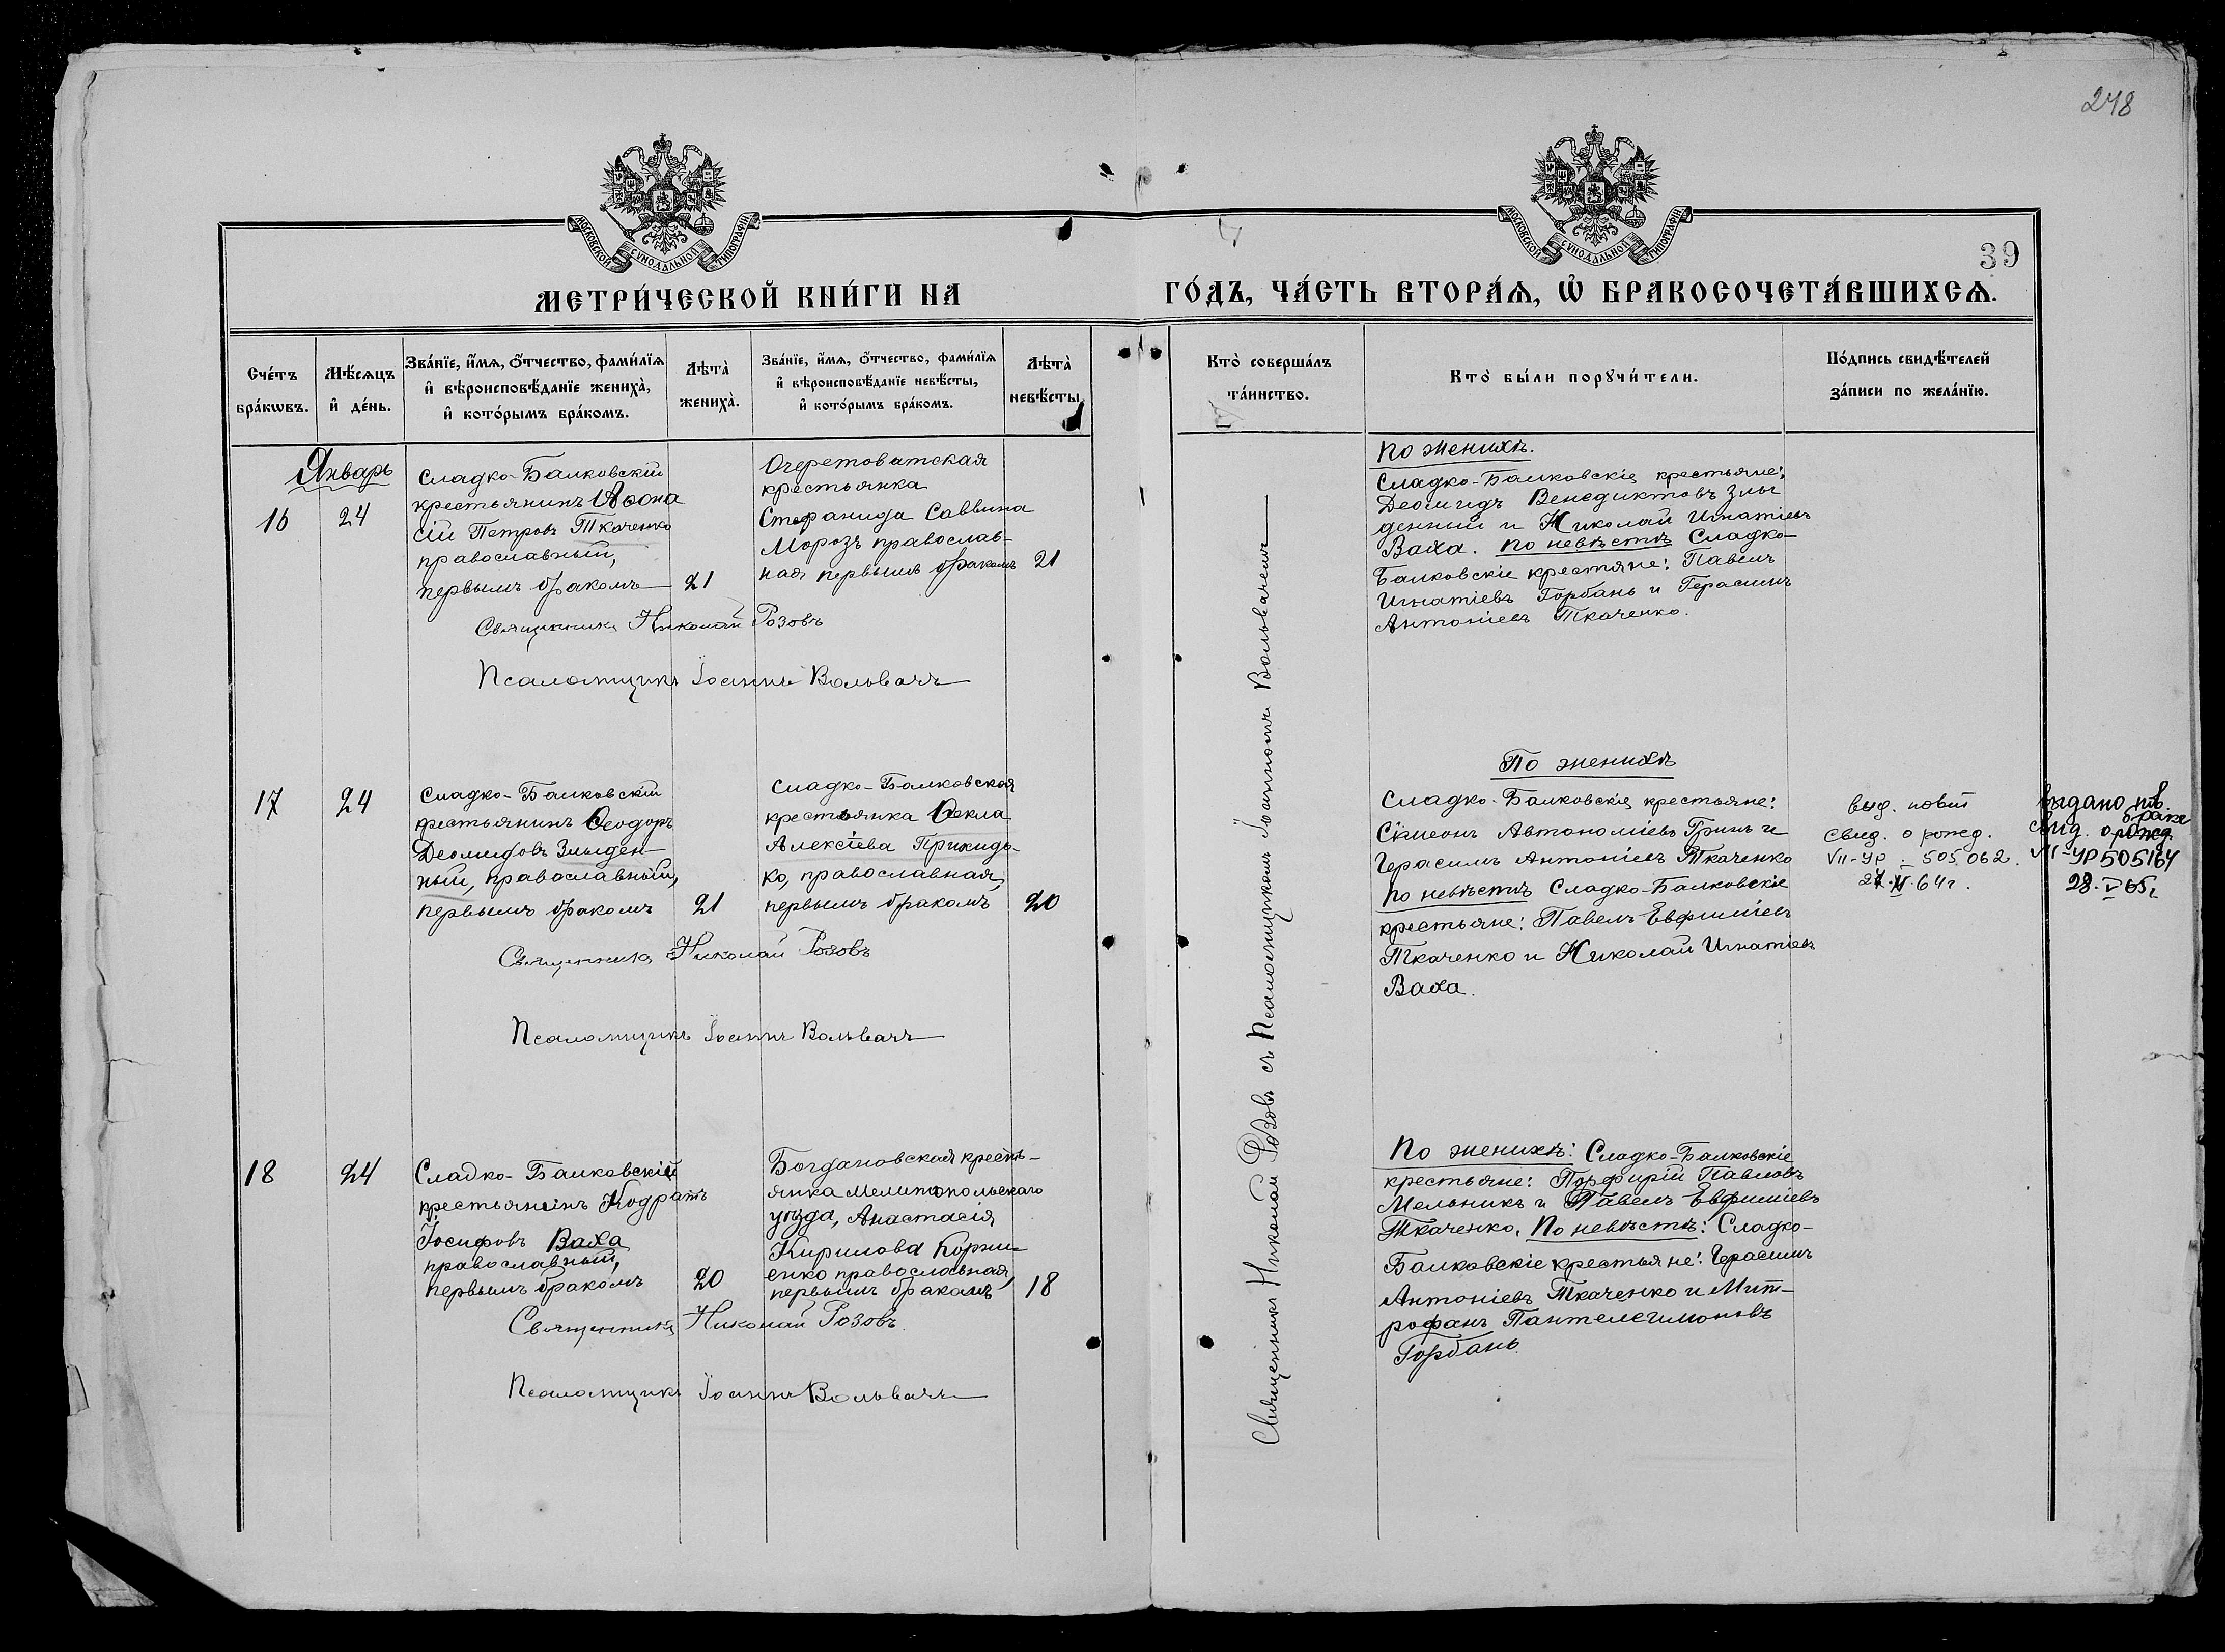 248
МОСКОВСКОЙ СѴНОДАЛЬНОЙ ТИПОГРАФІИ.
МОСКОВСКОЙ СѴНОДАЛЬНОЙ ТИПОГРАФІИ.
39
МЕТРИ́ЧЕСКОЙ КНИ́ГИ НА
ГО́ДЪ, ЧА́СТЬ ВТОРА́Ѧ, Ѽ БРАКОСОЧЕТА́ВШИХСѦ.
Сче́тъ бра́кѡвъ.
Мѣ́сѧцъ и҆ де́нь.
Зва́нїе, и҆́мѧ, ѻ҆́тчество, фами́лїѧ
и҆ вѣроисповѣ́данїе жениха̀,
и҆ кото́рымъ бра́комъ.
Лѣта̀ жениха̀.
Зва́нїе, и҆́мѧ, ѻ҆́тчество, фами́лїѧ
и҆ вѣроисповѣ́данїе невѣ́сты,
и҆ кото́рымъ бра́комъ.
Лѣта̀ невѣ́сты.
Кто̀ соверша́лъ
та́инство.
Кто̀ бы́ли порꙋчи́тели.
По́дпись свидѣ́телей
за́писи по жела́нїю.
Январь
16
24
Сладко-Балковскій
крестьянинъ Аѳона
сій Петровъ Ткаченко
православный,
первымъ бракомъ
21
Очеретоватская
крестьянка
Стефанида Саввина
Морозъ православ-
ная первымъ бракомъ
21
Священникъ Николай Розовъ
Псаломщикъ Іоаннъ Вольвачъ
По женихѣ.
Сладко-Балковскіе крестьяне:
Деомидъ Венедиктовъ Злы
денный и Николай Игнатіевъ
Ваха. По невѣстѣ Сладко-
Балковскіе крестяне: Павелъ
Игнатіевъ Горбань и Герасимъ
Антоніевъ Ткаченко.
17
24
Сладко-Балковскій
крестьянинъ Ѳеодоръ
Деомидовъ Злыден-
ный, православный,
первымъ бракомъ
21
Сладко-Балковская
крестьянка Ѳекла
Алексіева Прикидь-
ко, православная,
первымъ бракомъ
20
Священникъ Николай Розовъ
Псаломщикъ Іоаннъ Вольвачъ
По женихѣ
Сладко-Балковскіе крестьяне:
Сѵмеонъ Автономіевъ Гринь и
Герасимъ Антоніевъ Ткаченко
По невѣстѣ Сладко-Балковскіе
крестьяне: Павелъ Евфиміевъ
Ткаченко и Николай Игнатіевъ
Ваха.
выд. повт
свид. о рожд.
VII-УР 505062.
64г.
выдано пов.
браке
свид. о рожд
VII-УР 505164
28.V 65г
18
24
Сладко-Балковскій
крестьянинъ Кодратъ
Іосифовъ Ваха
православный,
первымъ бракомъ
20
Богдановская кресть-
янка Мелитопольскаго
уѣзда, Анастасія
Кирилова Коржи-
енко православная,
первымъ бракомъ
18
Священникъ Николай Розовъ.
Псаломщикъ Іоаннъ Вольвачъ
По женихѣ: Сладко-Балковскіе
крестьяне: Порфирій Павловъ
Мельникъ и Павелъ Евфиміевъ
Ткаченко. По невѣстѣ: Сладко-
Балковскіе крестьяне: Герасимъ
Антоніевъ Ткаченко и Мит-
рофанъ Пантелеимоновъ
Горбань.
Священникъ Николай Розовъ съ Псаломщикомъ Іоанномъ Вольвачемъ